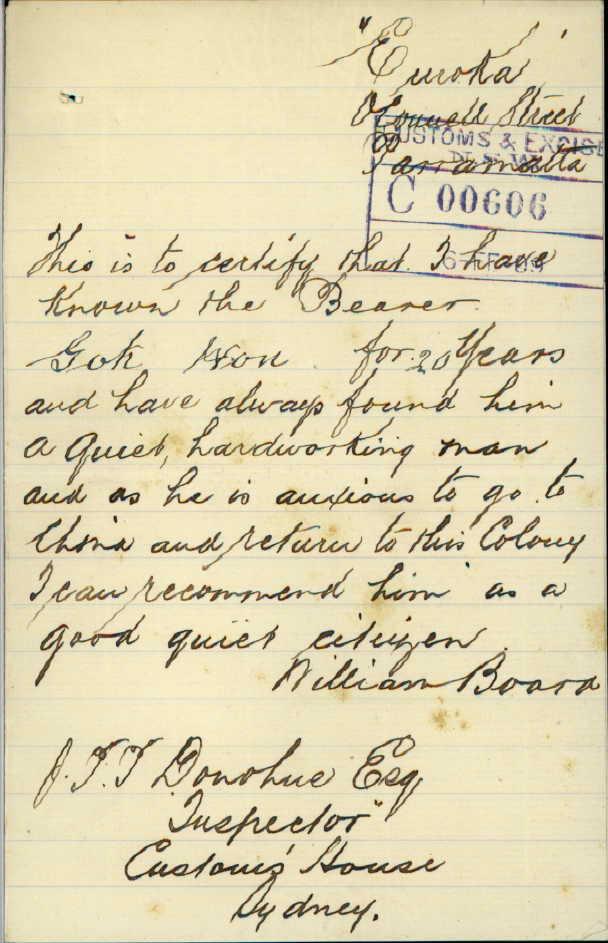 "Eureka"
O'Connell Street
Parramatta
CUSTOMS & EXCISE
C 00606
This is to certify that I have
known the Bearer
Gok Won for 20 Years
and have always found him
a quiet, hardworking man
and as he is anxious to go to
China and return to this Colony
I can recommend him as a
good quiet citizen.
William Board
J. T. T. Donohue Esq
Inspector"
Customs House
Sydney.